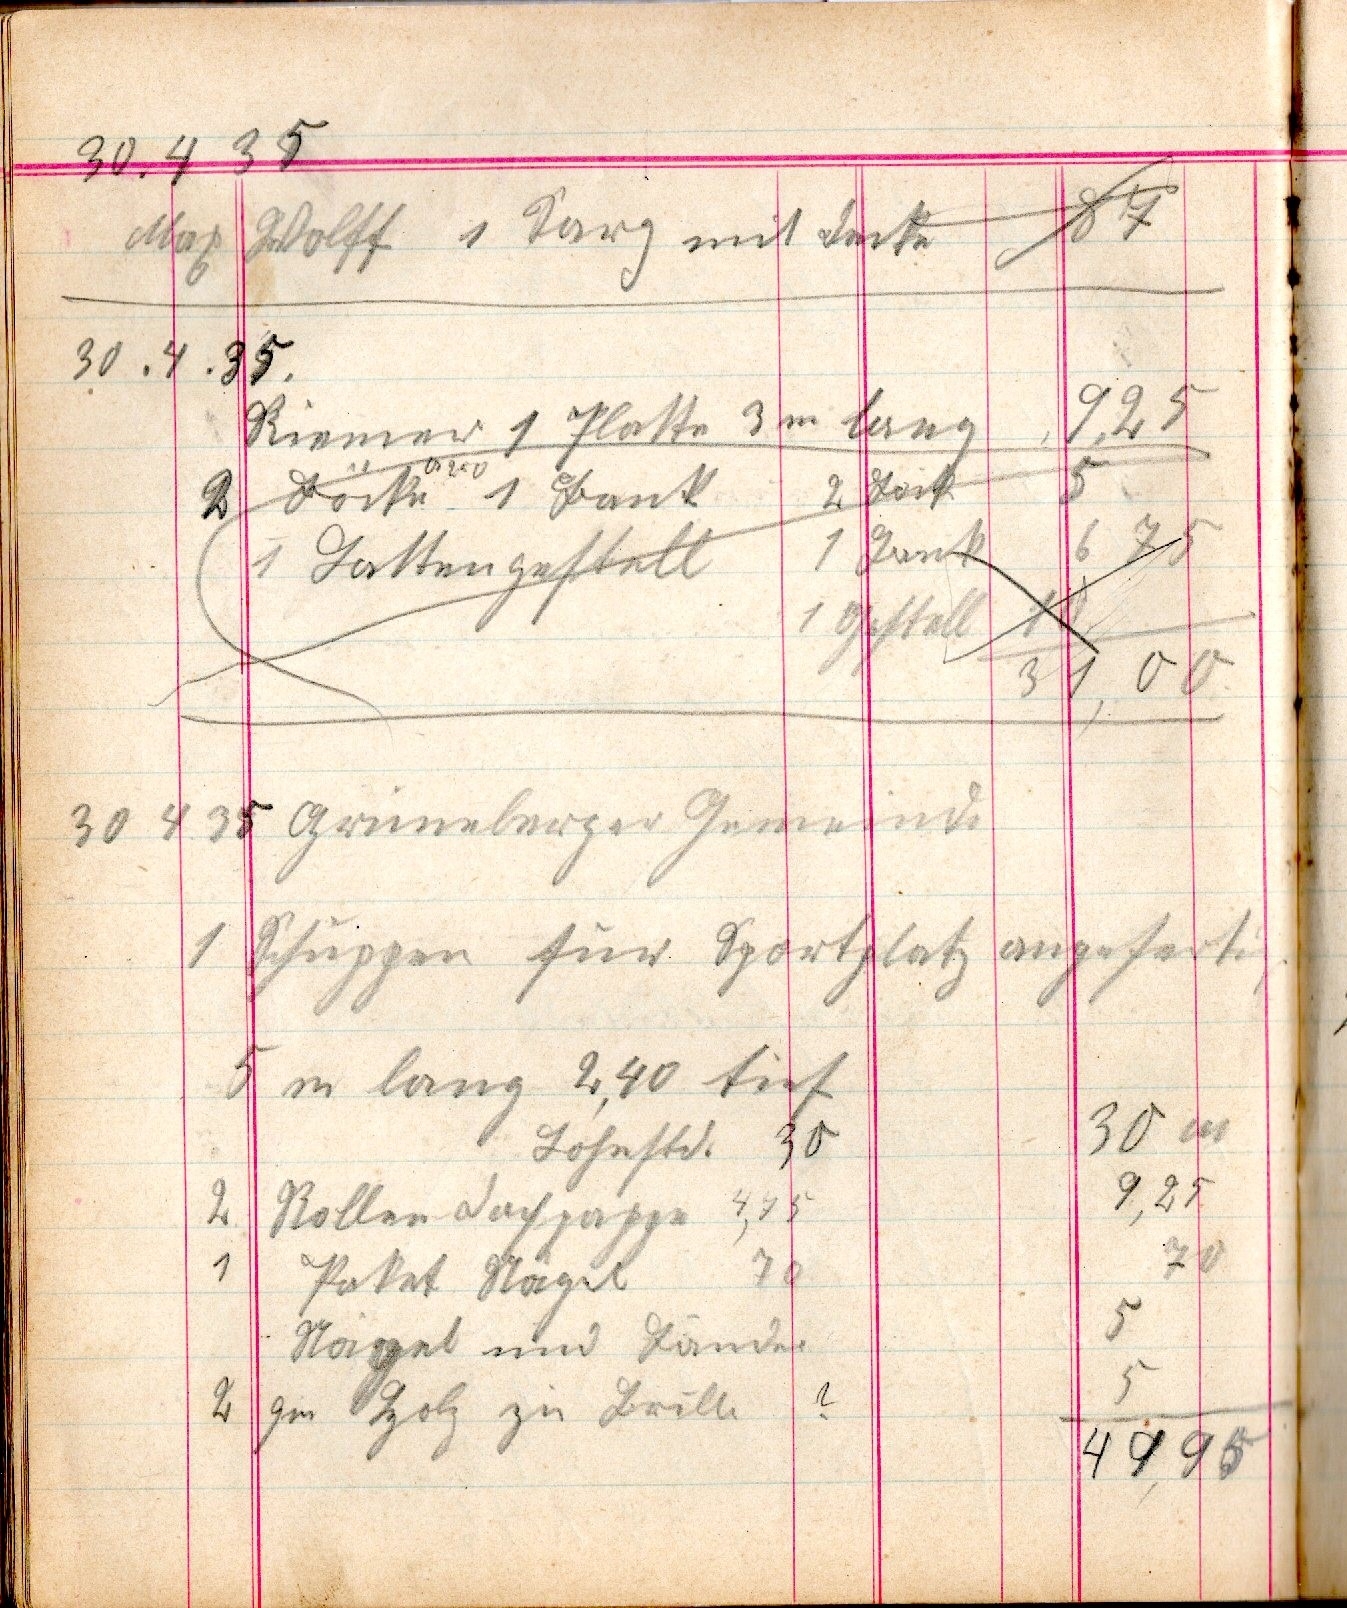 30. 4 35
Max Wolff 1 Sarg mit Decke 87
30. 4. 35.
Riemer 1 Platte 3 m lang 9,25
2 Böcke und 1 Bank 2 Böck 5
1 Lattengestell 1 Bank 6 75
1 Gestell 10
31,00
30 4 35 Grüneberger Gemeinde
1 Schuppen für Sportplatz angefertig
5 m lang 2,40 tief
Lohnstd. 30 30 m
2 Rollen Dachpappe 4,75 9,25
1 Paket Nägel 70 70
und Bänder 5
2 qm Holz zu Brille ? 5
49,95